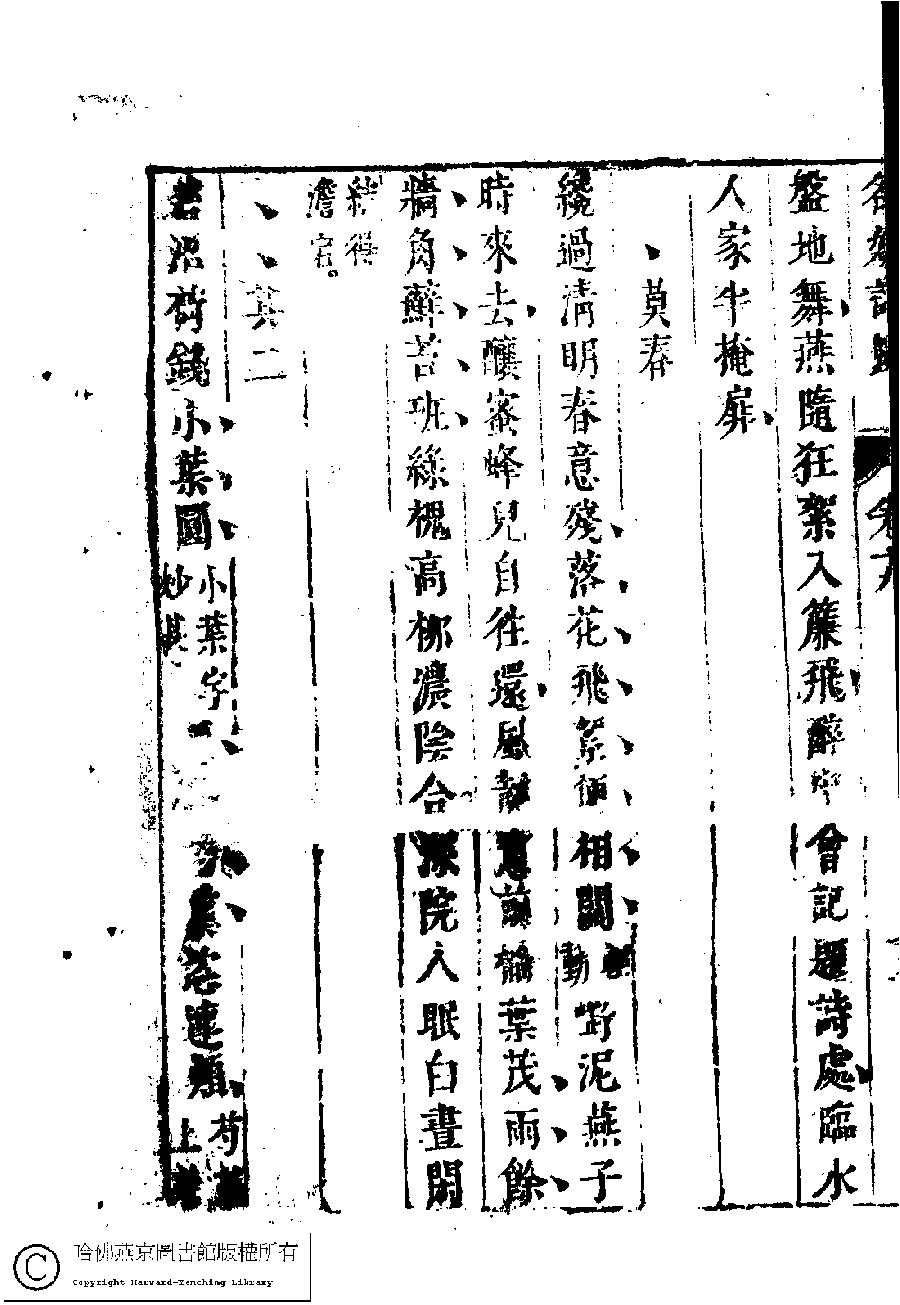 盤地舞燕隨狂絮入簾飛醉 曾記題詩處臨水
人家半掩扉
莫春
纔過清明春意殘落花飛絮便相關 動 野泥燕子
時來去釀蜜蜂兒自徃還風靜 前 葉茂雨餘
牆角蘚苔班綠槐高柳濃陰合深院人眠白晝閑
結得
澹宕
其二
碧沼荷錢小葉圓 小葉字
妙甚
上
哈佛燕京圖書館版權所有
Copyright Harvard-Yenching Library